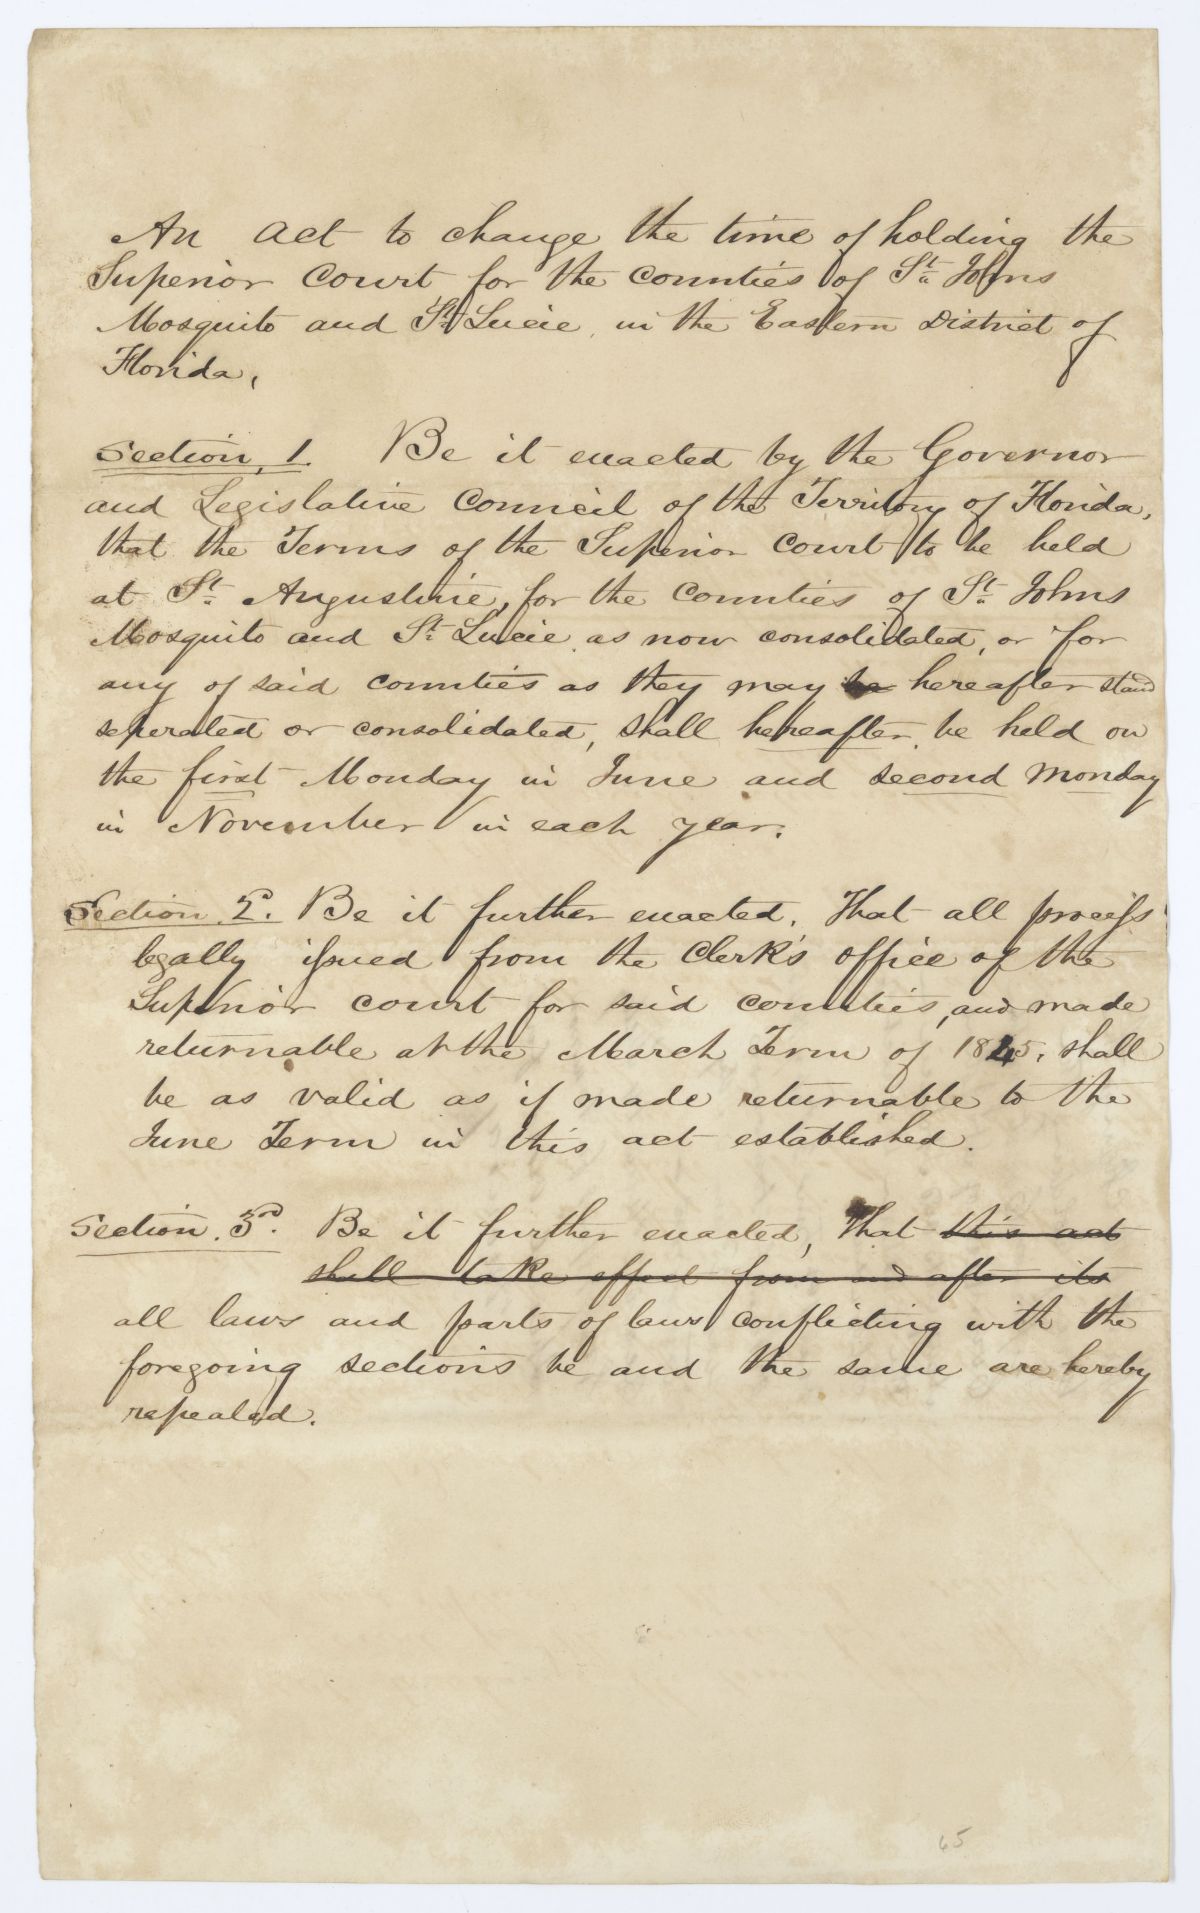 An act to change the time of holding the
Superior Court for the Counties of St. Johns
Mosquito and St. Lucie, in the Eastern District of
Florida,
Section, 1. Be it enacted by the Governor
and Legislative Council of the Territory of Florida,
that the Terms of the Superior Court to be held
at St. Augustine, for the Counties of St. Johns
Mosquito and St. Lucie, as now consolidated, or for
any of said counties as they may be hereafter stand
seperated or consolidated, shall hereafter, be held on
the first Monday in June and second Monday
in November in each year.
Section. 2d. Be it further enacted, That all process
legally issued from the Clerk's office of the
Superior court for said counties, and made
returnable at the March Term of 1845, shall
be as valid as if made returnable to the
June Term in this act established.
Section. 3d. Be it further enacted, That this act
shall take effect from and after its
all laws and parts of laws conflicting with the
foregoing sections be and the same are hereby
repealed.
65